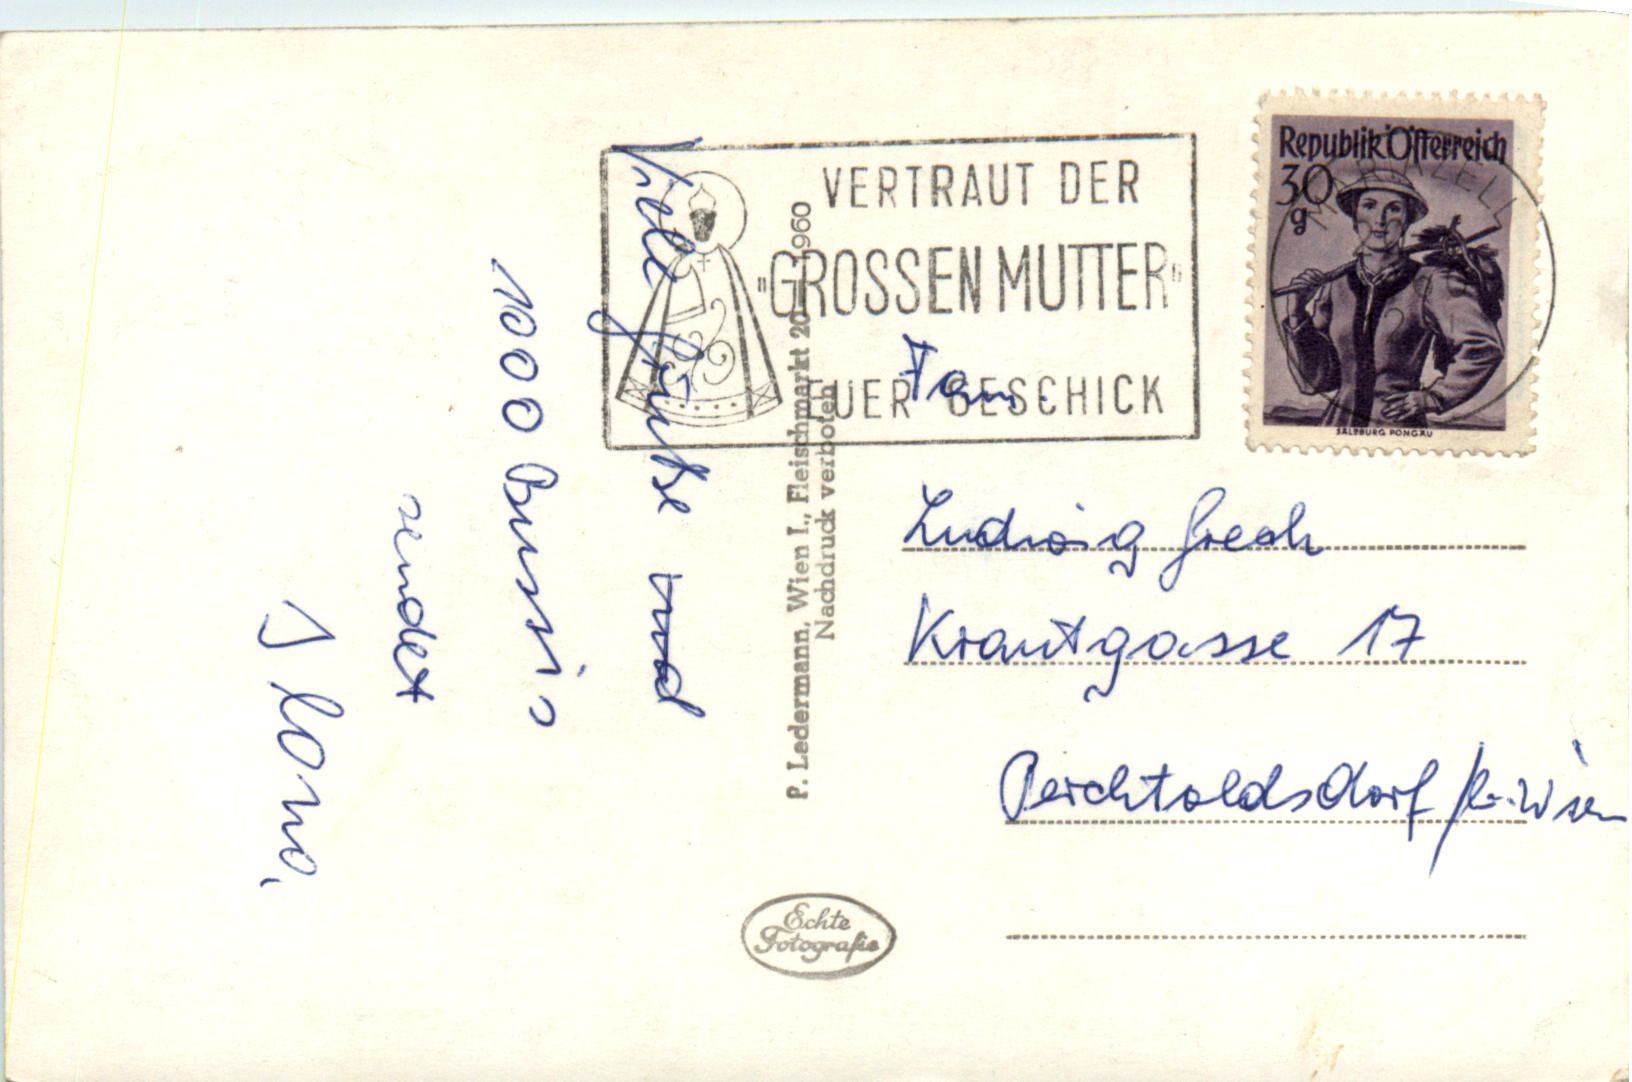 Viele Grüße und
1000 Bussis
sendet
Ilona.
P. Ledermann, Wien I., Fleischmarkt 20 — 1960
Nachdruck verboten
Echte
Fotografie
VERTRAUT DER
"GROSSEN MUTTER"
EUER GESCHICK
Republik Österreich
30
g
SALZBURG PONGAU
Fam.
Ludwig Grech
Krautgasse 17
Perchtoldsdorf / b. Wien